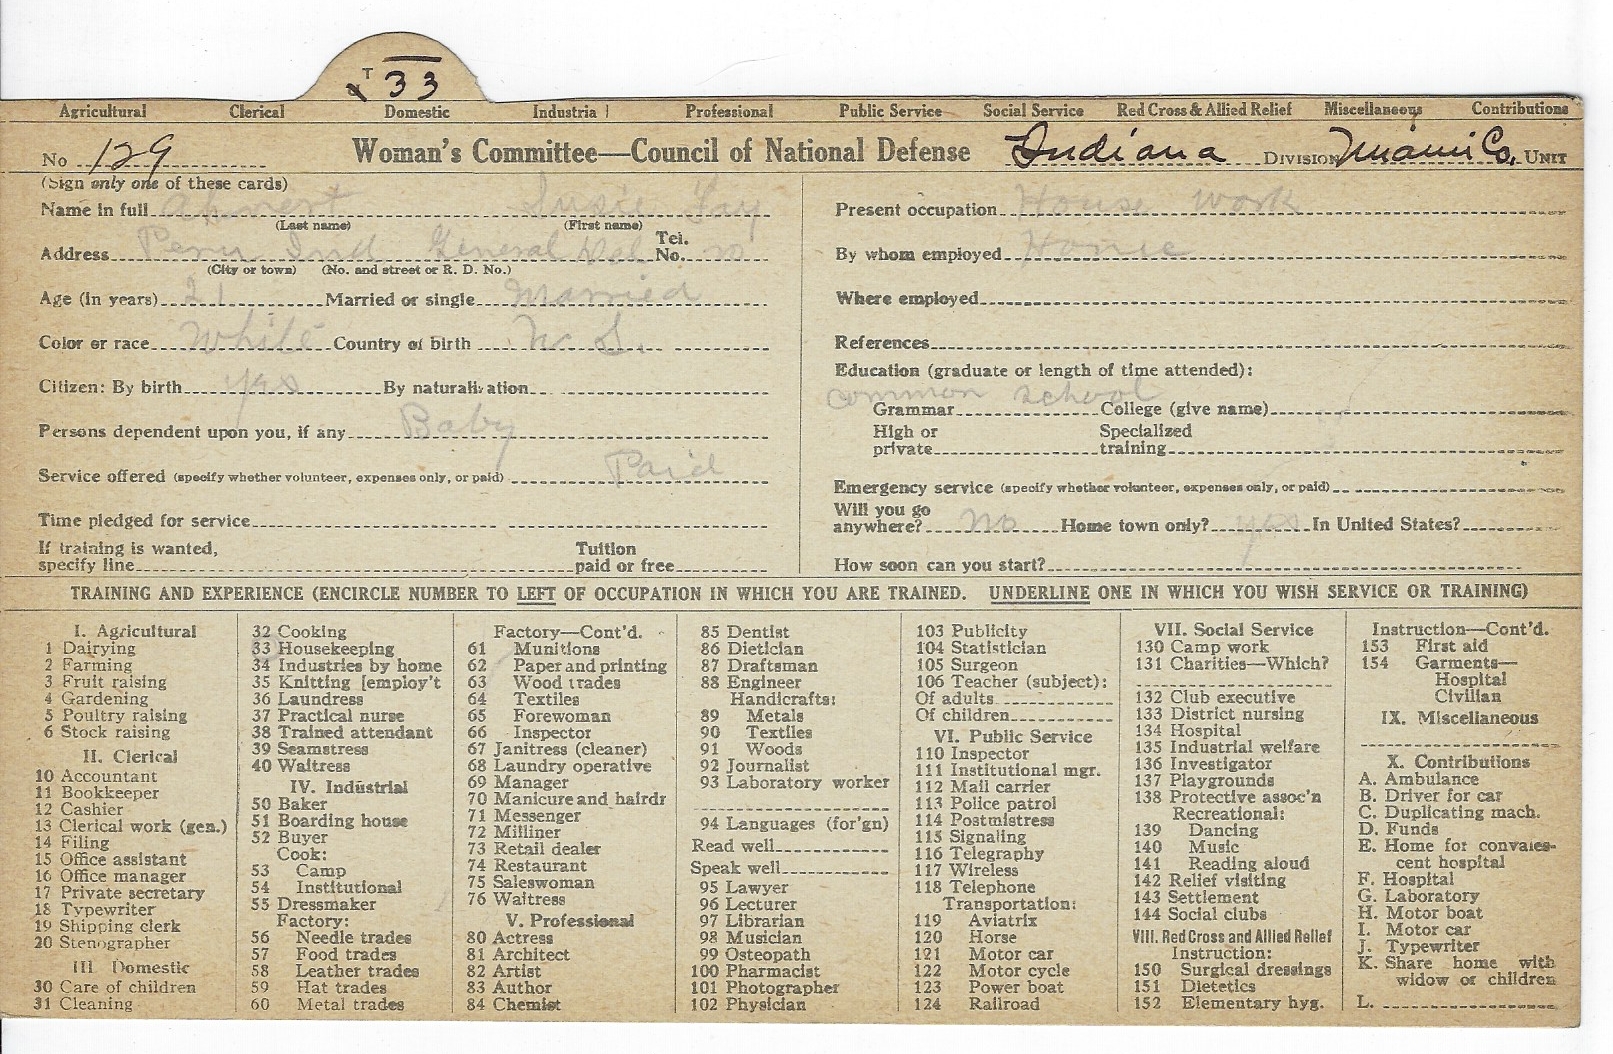 T 33
Agricultural Clerical Domestic Industrial Professional Public Service Social Service Red Cross & Allied Relief Miscellaneous Contributions
No 129 Woman's Committee—Council of National Defense Indiana DIVISION Miami Co. UNIT
(Sign only one of these cards)
Name in full Susie Fay
(Last name) (First name)
Address Peru Ind General Del Tel. No. no
(City or town) (No. and street or R. D. No.)
Age (in years) 21 Married or single Married
Color or race White Country of birth U. S.
Citizen: By birth yes By naturalization
Persons dependent upon you, if any Baby
Service offered (specify whether volunteer, expenses only, or paid) Paid
Time pledged for service
If training is wanted,
specify line
Tuition
paid or free
Present occupation House work
By whom employed Home
Where employed
References
Education (graduate or length of time attended):
common school
Grammar College (give name)
High or
private
Specialized
training
Emergency service (specify whether volunteer, expenses only, or paid)
Will you go
anywhere? no Home town only? yes In United States?
How soon can you start?
TRAINING AND EXPERIENCE (ENCIRCLE NUMBER TO LEFT OF OCCUPATION IN WHICH YOU ARE TRAINED. UNDERLINE ONE IN WHICH YOU WISH SERVICE OR TRAINING)
I. Agricultural
1 Dairying
2 Farming
3 Fruit raising
4 Gardening
5 Poultry raising
6 Stock raising
II. Clerical
10 Accountant
11 Bookkeeper
12 Cashier
13 Clerical work (gen.)
14 Filing
15 Office assistant
16 Office manager
17 Private secretary
18 Typewriter
19 Shipping clerk
20 Stenographer
III Domestic
30 Care of children
31 Cleaning
32 Cooking
33 Housekeeping
34 Industries by home
35 Knitting [employ't
36 Laundress
37 Practical nurse
38 Trained attendant
39 Seamstress
40 Waitress
IV. Industrial
50 Baker
51 Boarding house
52 Buyer
Cook:
53 Camp
54 Institutional
55 Dressmaker
Factory:
56 Needle trades
57 Food trades
58 Leather trades
59 Hat trades
60 Metal trades
Factory—Cont'd.
61 Munitions
62 Paper and printing
63 Wood trades
64 Textiles
65 Forewoman
66 Inspector
67 Janitress (cleaner)
68 Laundry operative
69 Manager
70 Manicure and hairdr
71 Messenger
72 Milliner
73 Retail dealer
74 Restaurant
75 Saleswoman
76 Waitress
V. Professional
80 Actress
81 Architect
82 Artist
83 Author
84 Chemist
85 Dentist
86 Dietician
87 Draftsman
88 Engineer
Handicrafts:
89 Metals
90 Textiles
91 Woods
92 Journalist
93 Laboratory worker
94 Languages (for'gn)
Read well
Speak well
95 Lawyer
96 Lecturer
97 Librarian
98 Musician
99 Osteopath
100 Pharmacist
101 Photographer
102 Physician
103 Publicity
104 Statistician
105 Surgeon
106 Teacher (subject):
Of adults
Of children
VI. Public Service
110 Inspector
111 Institutional mgr.
112 Mail carrier
113 Police patrol
114 Postmistress
115 Signaling
116 Telegraphy
117 Wireless
118 Telephone
Transportation:
119 Aviatrix
120 Horse
121 Motor car
122 Motor cycle
123 Power boat
124 Railroad
VII. Social Service
130 Camp work
131 Charities—Which?
132 Club executive
133 District nursing
134 Hospital
135 Industrial welfare
136 Investigator
137 Playgrounds
138 Protective assoc'n
Recreational:
139 Dancing
140 Music
141 Reading aloud
142 Relief visiting
143 Settlement
144 Social clubs
VIII. Red Cross and Allied Relief
Instruction:
150 Surgical dressings
151 Dietetics
152 Elementary hyg.
Instruction—Cont'd.
153 First aid
154 Garments—
Hospital
Civilian
IX. Miscellaneous
X. Contributions
A. Ambulance
B. Driver for car
C. Duplicating mach.
D. Funds
E. Home for convales-
cent hospital
F. Hospital
G. Laboratory
H. Motor boat
I. Motor car
J. Typewriter
K. Share home with
widow or children
L.